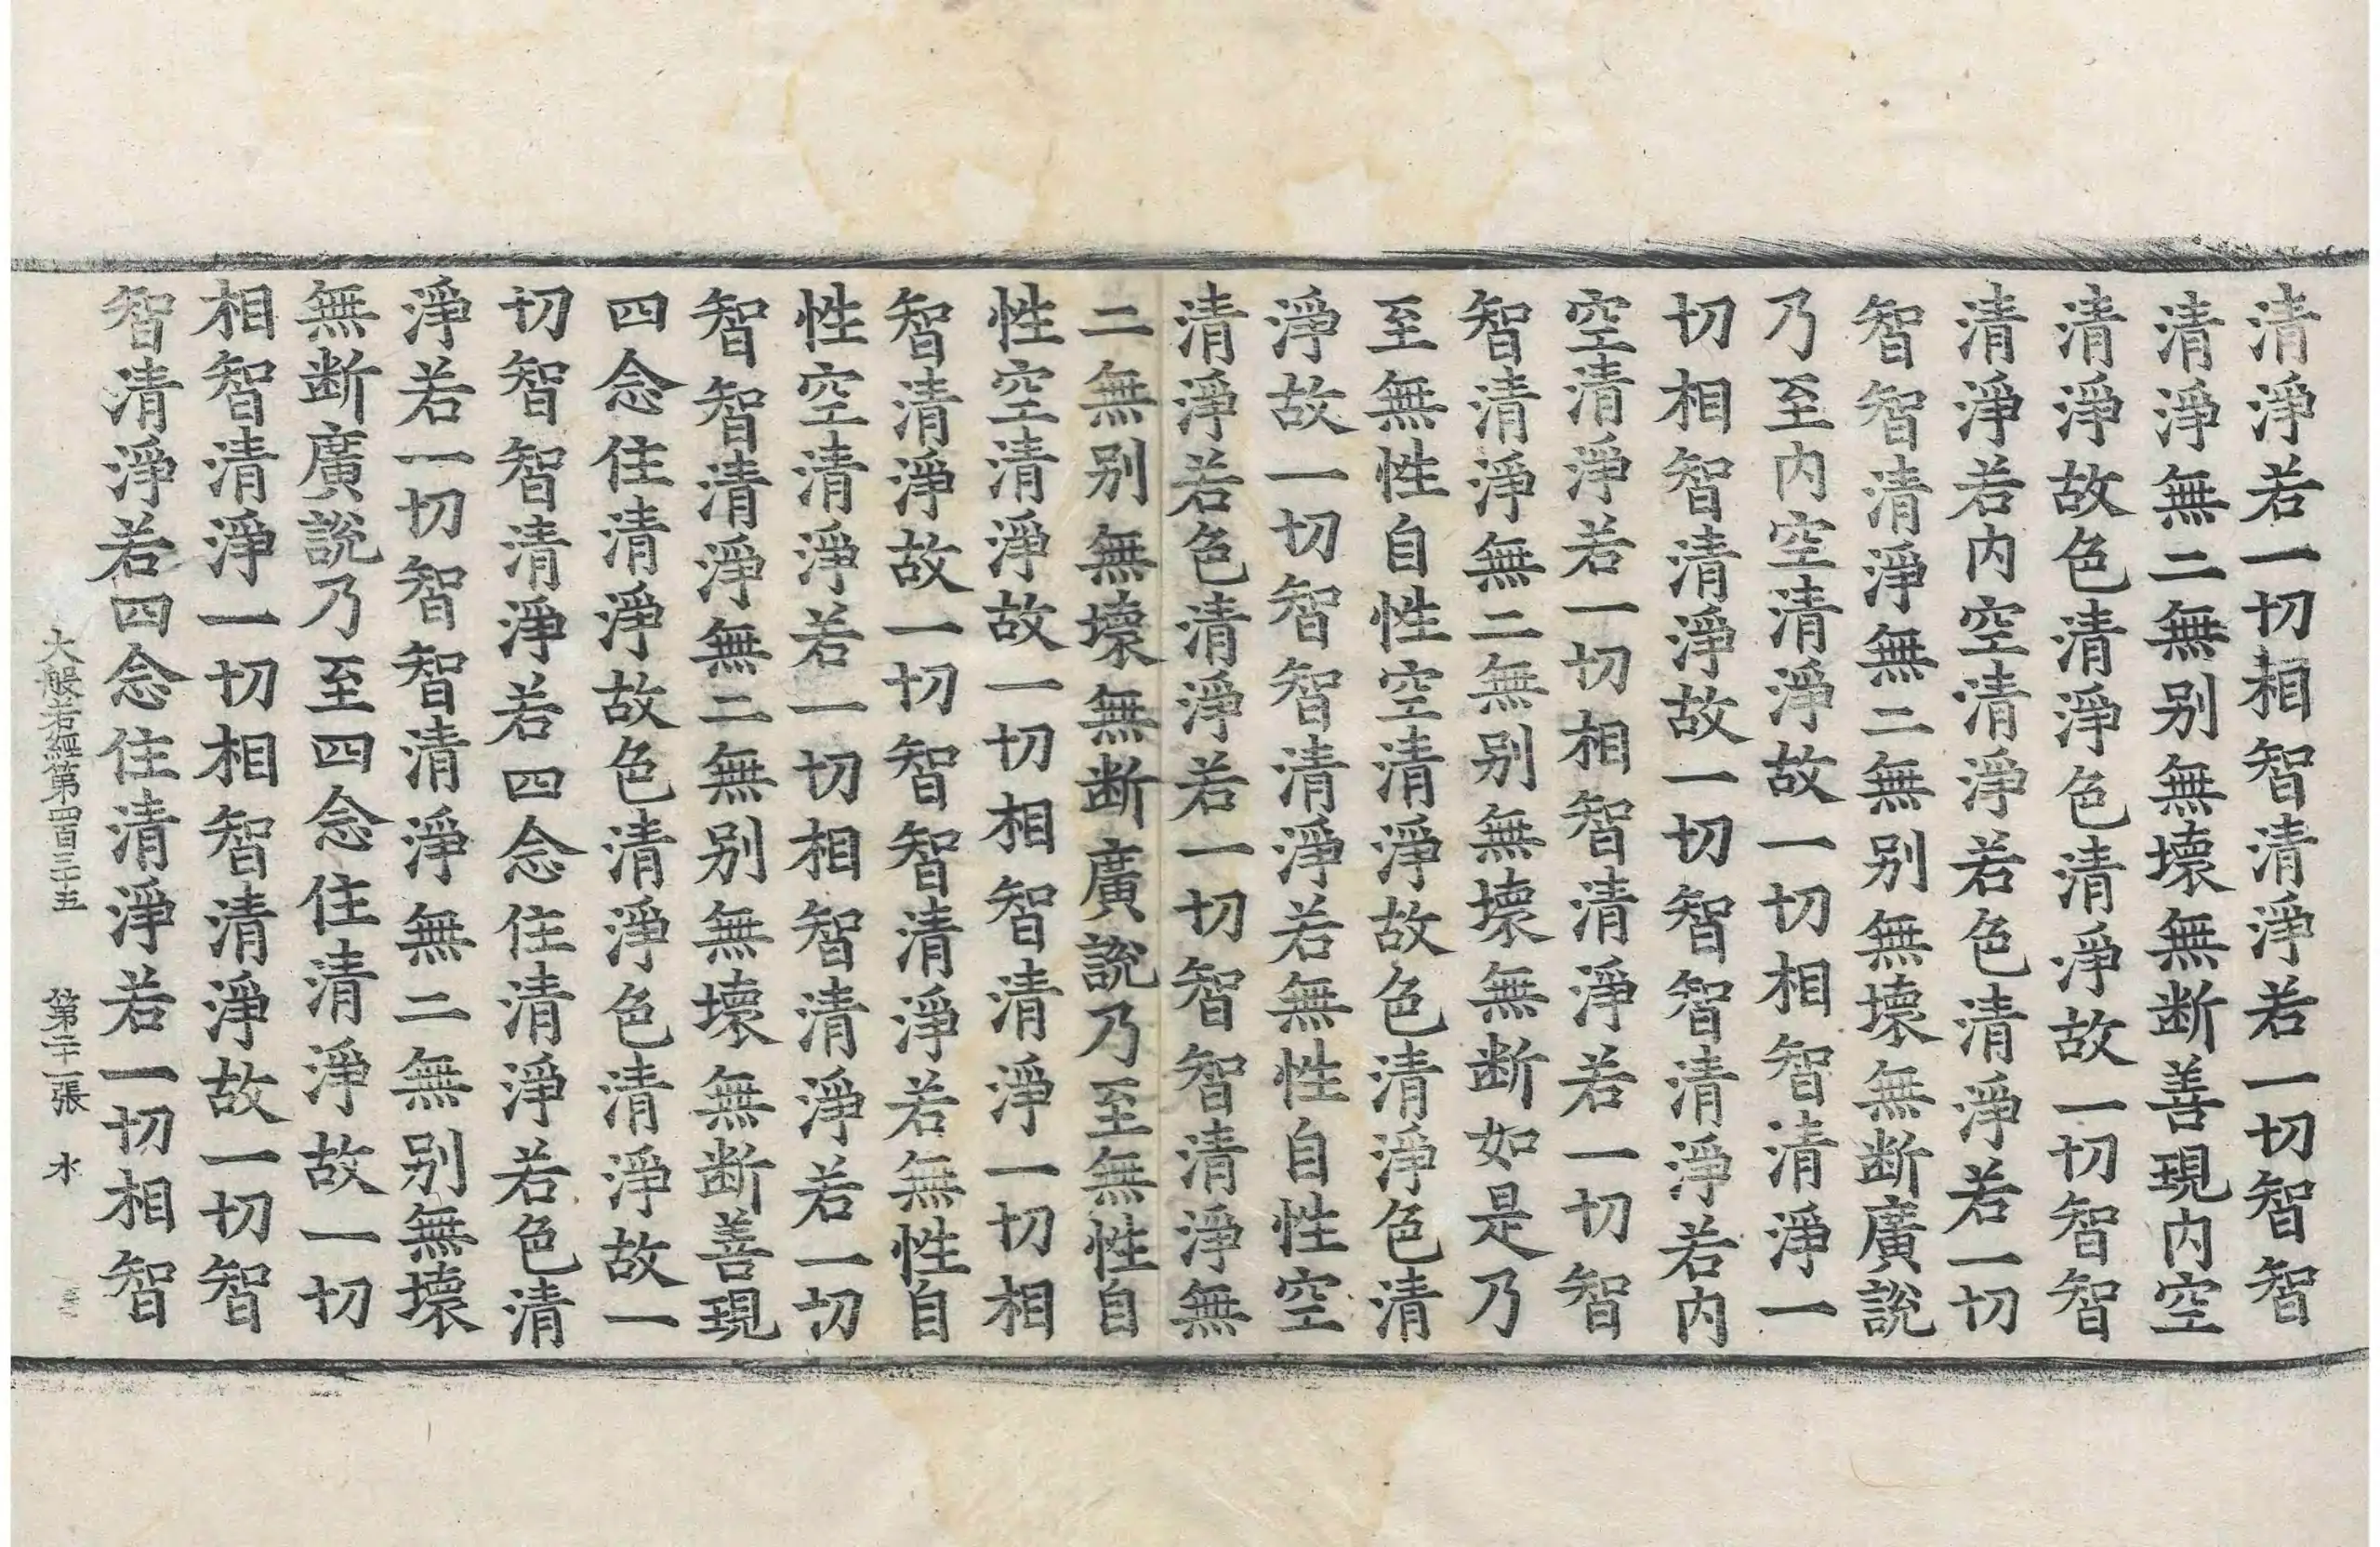 清淨若一切相智清淨若一切智智
清淨無二無别無壞無断善現内空
清淨故色清淨色清淨故一切智智
清淨若内空清淨若色清淨若一切
智智清淨無二無别無壞無断廣說
乃至内空清淨故一切相智清淨一
切相智清淨故一切智智清淨若内
空清淨若一切相智清淨若一切智
智清淨無二無别無壞無断如是乃
至無性自性空清淨故色清淨色清
淨故一切智智清淨若無性自性空
清淨若色清淨若一切智智清淨無
二無别無壞無断廣說乃至無性自
性空清淨故一切相智清淨一切相
智清淨故一切智智清淨若無性自
性空清淨若一切相智清淨若一切
智智清淨無二無别無壞無断善現
四念住清淨故色清淨色清淨故一
切智智清淨若四念住清淨若色清
淨若一切智智清淨無二無别無壞
無断廣說乃至四念住清淨故一切
相智清淨一切相智清淨故一切智
智清淨若四念住清淨若一切相智
大般若經第四百三十五 第二十一張 水